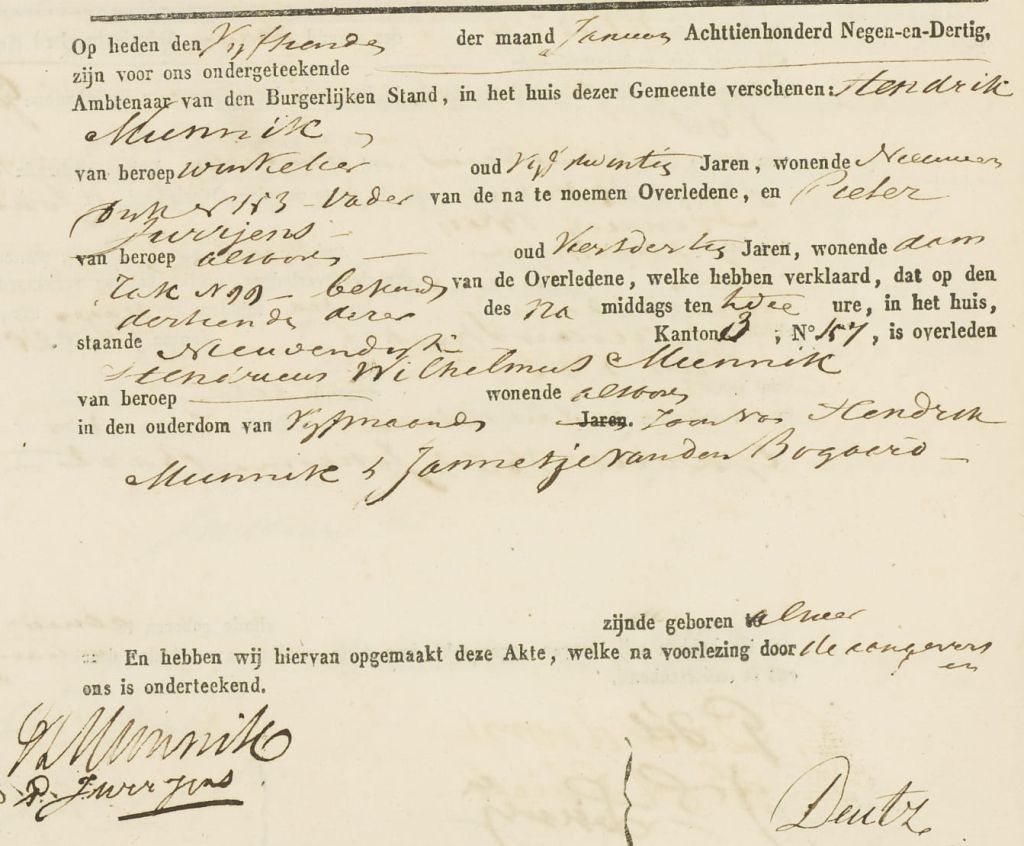 Op heden den Vyftiende der maand Januarij Achttienhonderd Negen-en-Dertig,
zijn voor ons ondergeteekende
Ambtenaar van den Burgerlijken Stand, in het huis dezer Gemeente verschenen: Hendrik
Munnik
van beroep winkelier oud Vyf twintig Jaren, wonende Nieuwen
dyk N 153 - Vader van de na te noemen Overledene, en Pieter
Jurrjens
van beroep alvoren oud Vierdertig Jaren, wonende dam
rak N 99 - bekende van de Overledene, welke hebben verklaard, dat op den
dertiende dezer des Na middags ten twee ure, in het huis,
staande Nieuwendyk Kanton 3, No 157, is overleden
Hendricus Wilhelmus Munnik
van beroep wonende alvoren
in den ouderdom van Vyf maanden Jaren. Zoon van Hendrik
Munnik & Jannetje van den Bogaerd
zijnde geboren alhier
En hebben wij hiervan opgemaakt deze Akte, welke na voorlezing door de aangevers
en
ons is onderteekend.
H Munnik
P. Jurrjens
Deutz